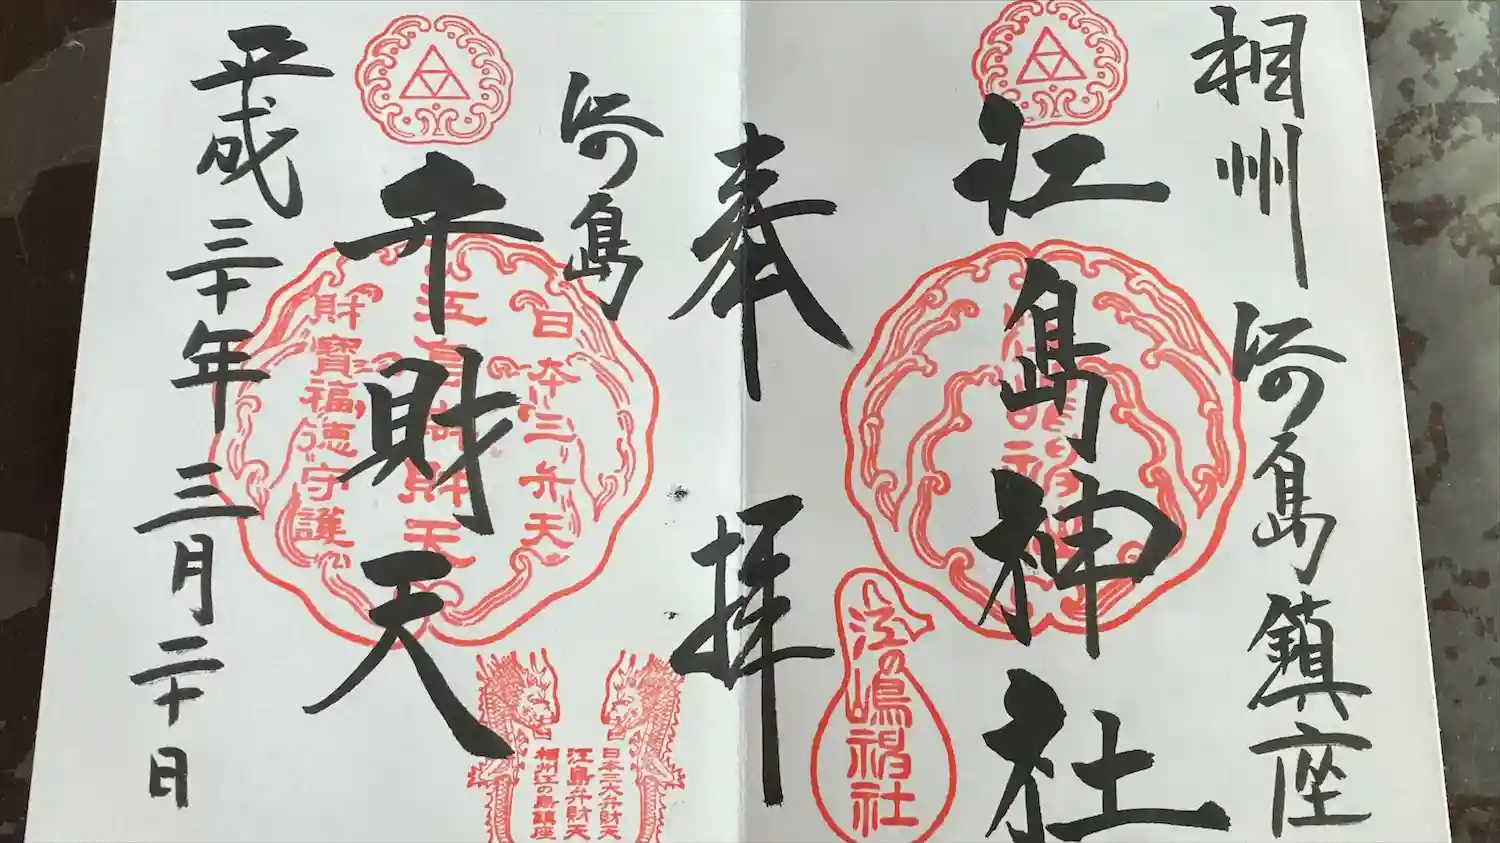 相州江の島鎮座
江島神社
江の嶋神社
奉拝
江の島
日本三弁天
江島弁財天
財寶福徳守護
弁財天
日本三大弁財天
江島弁財天
相州江の島鎮座
平成三十年三月二十日